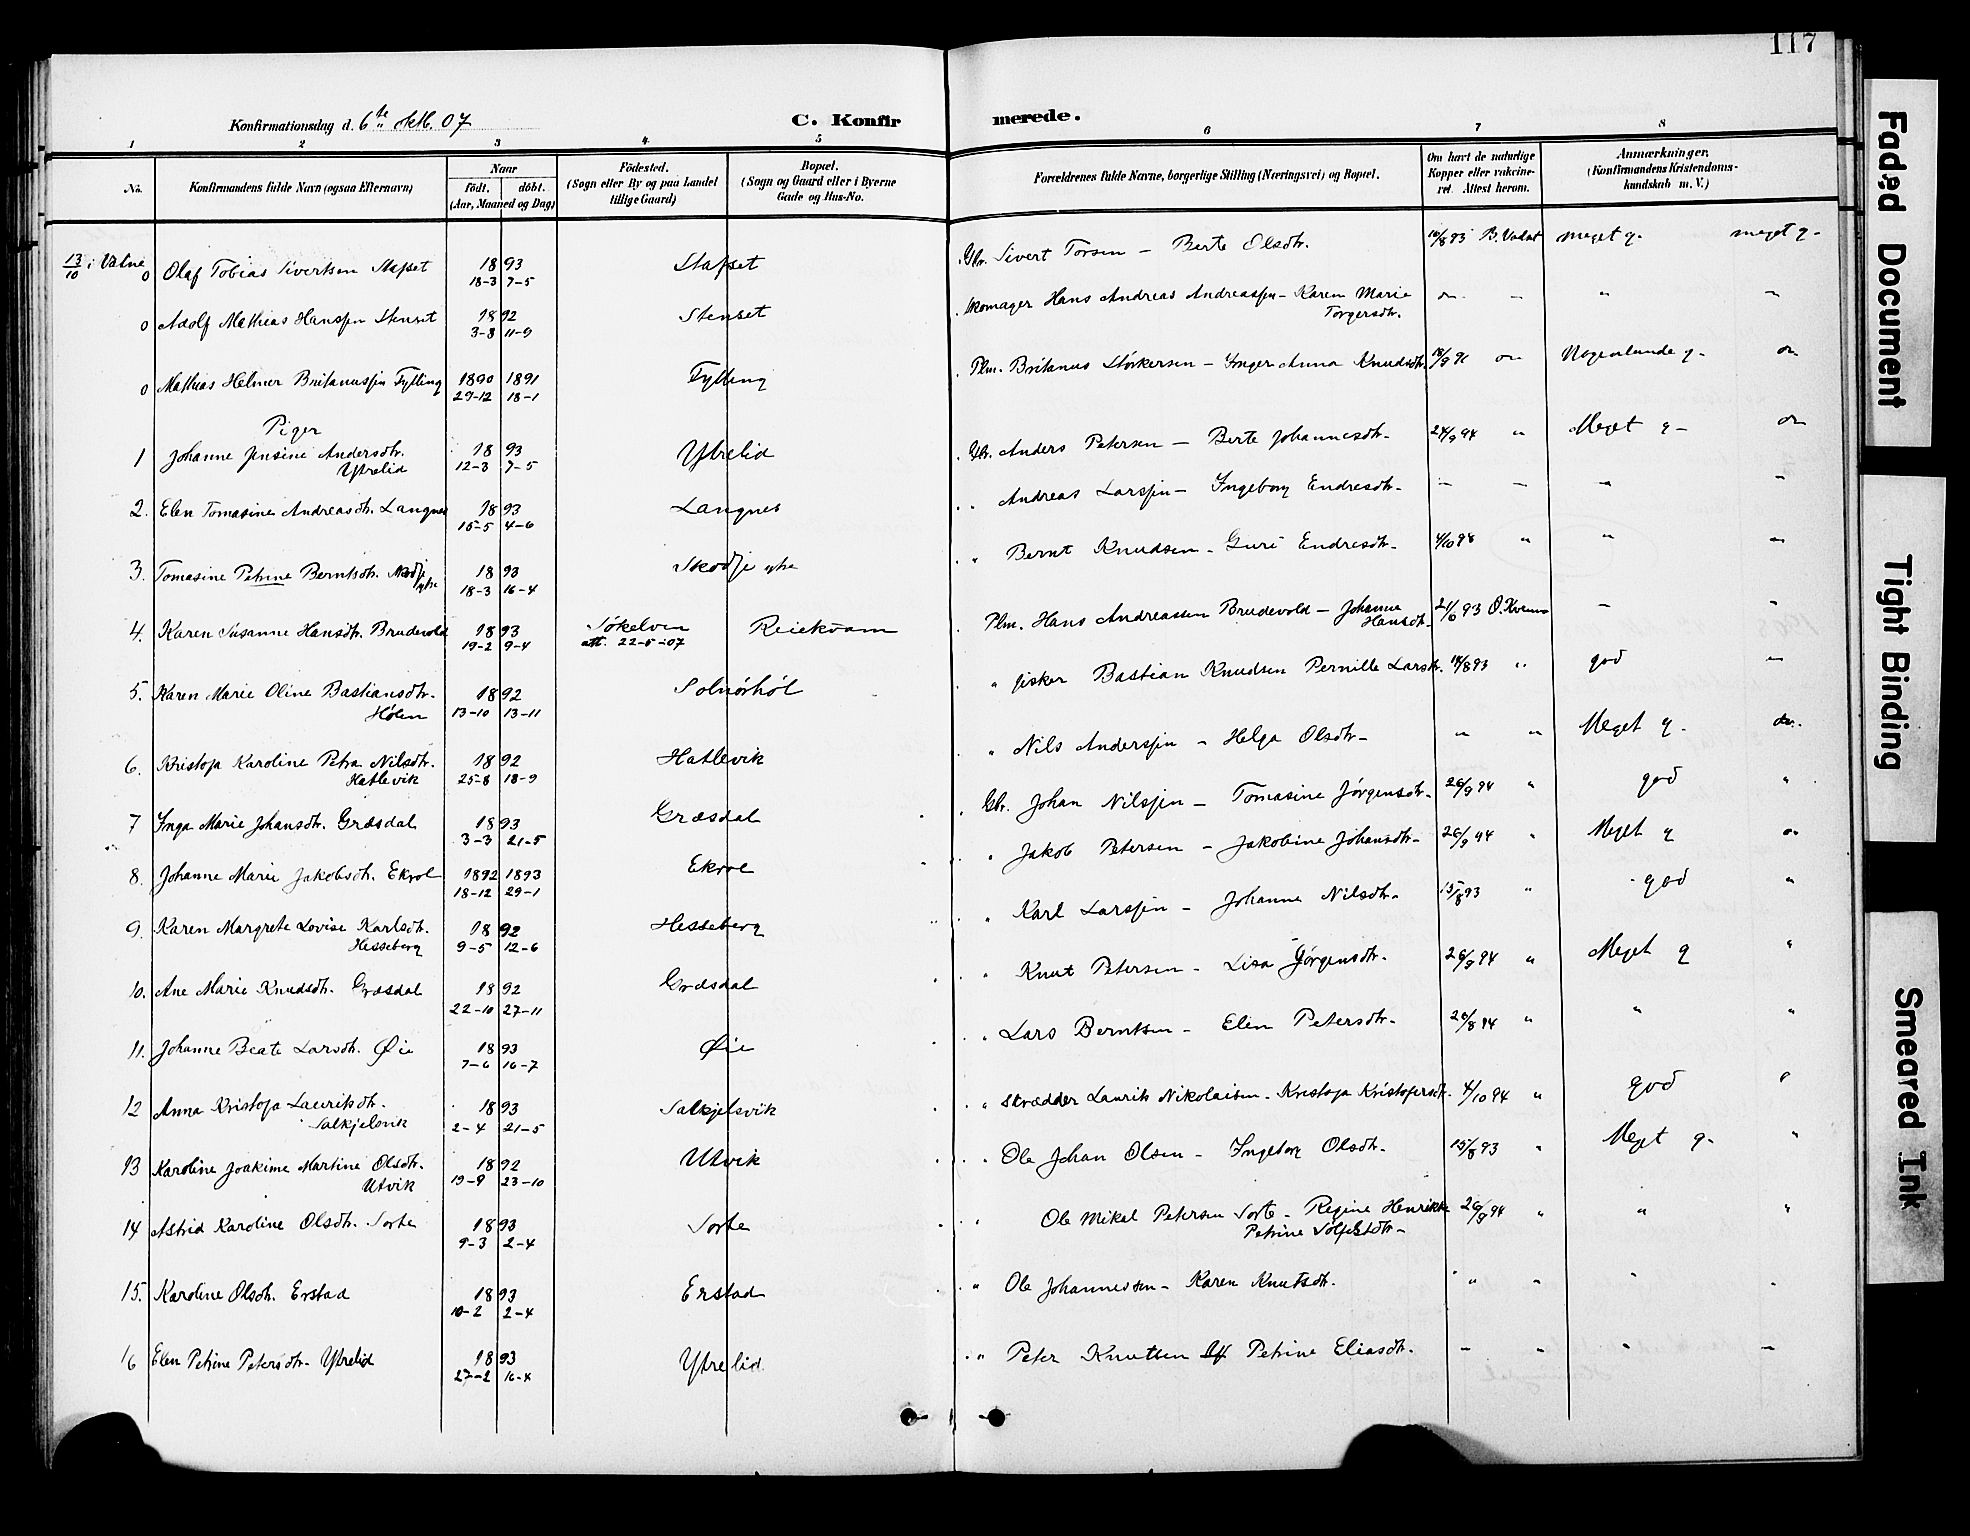 117
Konfirmationsdag d. 6te Oktb. 07
C. Konfirmerede.
1 2 3 4 5 6 7 8
No.
Konfirmandens fulde Navn (ogsaa Efternavn)
Naar
födt. döbt.
(Aar, Maaned og Dag)
Födested.
(Sogn eller By og paa Landet
tillige Gaard)
Bopæl.
(Sogn og Gaard eller i Byerne
Gade og Hus-No.
Forældrenes fulde Navne, borgerlige Stilling (Næringsvei) og Bopæl.
Om havt de naturlige
Kopper eller vakcine-
ret. Attest herom.
Anmærkninger.
(Konfirmandens Kristendoms-
kundskab m. V.)
13/10 i Vatne
0 Olaf Tobias Sivertsen Stafset 1893 18-3 7-5 Stafset Gbr. Sivert Torsen - Berte Olsdtr. 16/8 93 B. Vadset meget g. meget g.
0 Adolf Mathias Hanssen Stenset 1892 3-8 11-9 Stenset Skomager Hans Andreas Andreassen - Karen Marie
Torgersdtr.
0 Mathias Helmer Britanussen Fylling 1890 1891 29-12 18-1 Fylling Plm. Britanus Størkersen - Inger Anna Knudsdtr. Nogenlunde g.
Piger
1 Johanne Jensine Andersdtr.
Ytrelid 1893 12-3 7-5 Ytrelid Gbr. Anders Petersen - Berte Johannesdtr. 24/9 94 " Meget g.
2. Elen Tomasine Andreasdtr. Langnes 1893 15-5 4-6 Langnes " Andreas Larssen - Ingeborg Endresdtr.
3. Tomasine Petrine Berntsdtr. Skodje
ytre 1893 18-3 16-4 Skodje ytre " Bernt Knudsen - Guri Endresdtr. 4/10 94 " "
4. Karen Susanne Hansdtr. Brudevold 1893 19-2 9-4 Søkelven
att. 22-5-07 Reiekvam Plm. Hans Andreassen Brudevold - Johanne
Hansdtr.
5. Karen Marie Oline Bastiansdtr.
Hølen 1892 13-10 13-11 Solnørhøl " fisker Bastian Knudsen Pernille Larsdtr. 14/8 93 " god
6. Kristofa Karoline Petra Nilsdtr.
Hatlevik 1892 25-8 18-9 Hatlevik " Nils Anderssen - Helga Olsdtr. " " Meget g. do.
7 Inga Marie Johansdtr. Græsdal 1893 3-3 21-5 Græsdal Gbr. Johan Nilssen - Tomasine Jørgensdtr. 26/9 94 " god "
8. Johanne Marie Jakobsdtr. Ekrol 1892 1893 18-12 29-1 Ekrol " Jakob Petersen - Jakobine Johansdtr. 26/9 94 " Meget g
9. Karen Margrete Lovise Karlsdtr.
Hesseberg 1892 9-5 12-6 Hesseberg " Karl Larssen - Johanne Nilsdtr. 15/8 93 " god "
10. Ane Marie Knudsdtr. Græsdal 1892 22-10 27-11 Græsdal " Knut Petersen - Lisa Jørgensdtr. 26/9 94 " Meget g "
11. Johanne Beate Larsdtr. Øie 1893 7-6 16-7 Øie " Lars Berntsen - Elen Petersdtr. 26/8 94 " " "
12 Anna Kristofa Lauritsdtr.
Salkjelsvik 1893 2-4 21-5 Salkjelsvik " Skrædder Laurits Nikolaisen - Kristofa Kristofersdtr. 4/10 94 " god "
13 Karoline Joakime Martine Olsdtr.
Utvik 1892 19-9 23-10 Utvik " Ole Johan Olsen - Ingeborg Olsdtr. 15/8 93 " Meget g. "
14 Astrid Karoline Olsdtr. Sorte 1893 9-3 2-4 Sorte " Ole Mikal Petersen Sorte - Regine Henrikke
Petrine Solfestdtr. 26/9 94 " " "
15. Karoline Olsdtr. Erstad 1893 10-2 2-4 Erstad " Ole Johannessen - Karen Knutsdtr. " " " "
16 Elen Petrine Petersdtr. Ytrelid 1893 27-2 16-4 Ytrelid " Peter Knutsen Petrine Eliasdtr. - " " -
Faded Document
Tight Binding
Smeared Ink